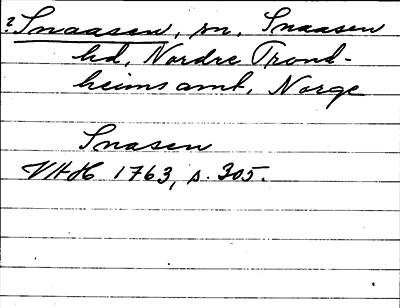 ? Snaasen, sn, Snaasen
hd, Nordre Trond-
heims amt, Norge
Snasen
VAH 1763, s. 305.